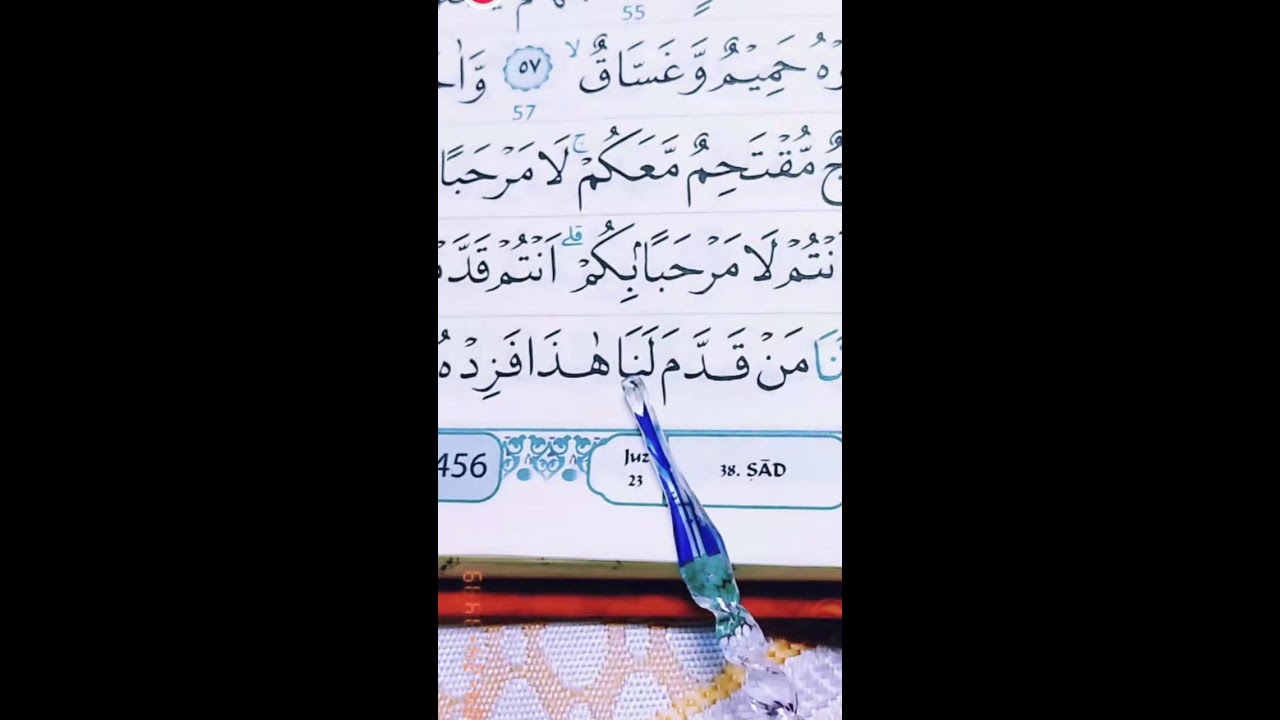 55
حَمِيْمٌ وَّغَسَّاقٌۙ ٥٧
57
مُّقْتَحِمٌ مَّعَكُمْۚ لَا مَرْحَبًا
لَا مَرْحَبًاۢ بِكُمْۗ اَنْتُمْ
مَنْ قَدَّمَ لَنَا هٰذَا فَزِدْهُ
456
Juz
23
38. ṢĀD